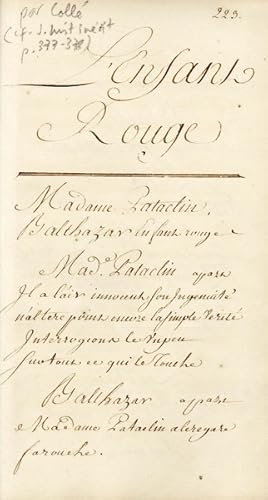 par Collé
(cf. J. hist inédit
p. 377-378)
223.
L'Enfant
Rouge
Madame Pataclin,
Balthazar Enfant rouge
Mad.e Pataclin apart
Il a l'air innocent son Ingenuité
n'altere point encore la simple verité
Interrogeons le un peu
Surtout ce qui le Touche
Balthazar apart
Madame Pataclin a le regard
farouche.